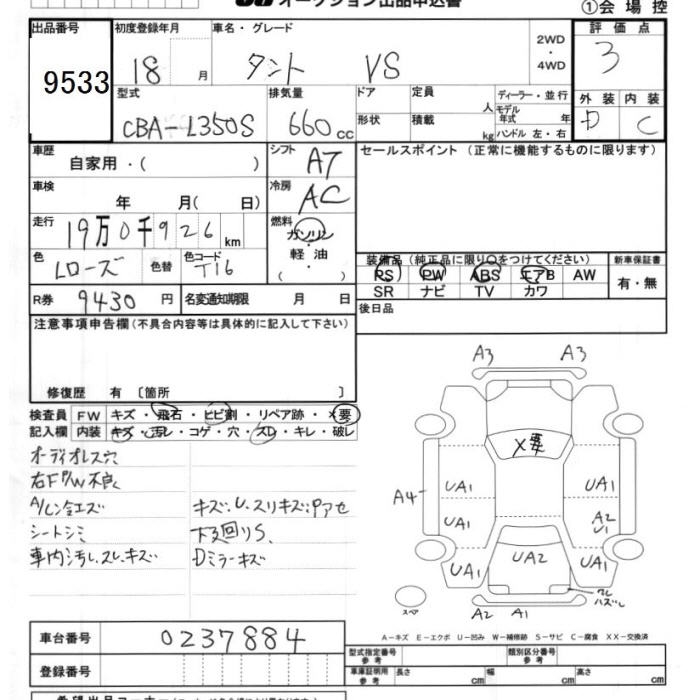 オークション出品申込書
①会場控
出品番号
9533
初度登録年月
18 月
車名・グレード
タント VS
2WD
・
4WD
評価点
3
型式
CBA-L350S
排気量
660 cc
ドア
形状
定員 人
積載 kg
ディーラー・並行
モデル年式 年
ハンドル 左・右
外装 内装
D C
車歴
自家用・( )
シフト
AT
セールスポイント (正常に機能するものに限ります)
車検
年 月( 日)
冷房
AC
走行
19万0千926km
燃料
ガソリン
・
軽油
( )
色
Lローズ
色替
色コード
T16
装備品(純正品に限り○をつけてください)
PS PW ABS エアB AW
SR ナビ TV カワ
新車保証書
有・無
R券 9430円
名変通知期限 月 日
後日品
注意事項申告欄(不具合内容等は具体的に記入して下さい)
修復歴 有 〔箇所 〕
検査員
記入欄
FW キズ・飛石・ヒビ割・リペア跡・×要
内装 キズ・汚レ・コゲ・穴・スレ・キレ・破レ
オーディオレス穴
右FP/W不良
A/Cン金エズ
シートシミ
車内汚レ.スレ.キズ
キズ.U.スリキズ.Pアセ
下廻りS.
Dミラーキズ
A3 A3
X要
A4 UA1 UA1
UA1 A2
U1
UA1 UA2 UA1
ハズレ
スペア
A2 A1
A−キズ E−エクボ U−凹み W−補修跡 S−サビ C−腐食 XX−交換済
車台番号 0237884
登録番号
型式指定番号
参考
類別区分番号
参考
車庫証明用
参考
長さ cm 幅 cm 高さ cm
希望出品コーナー